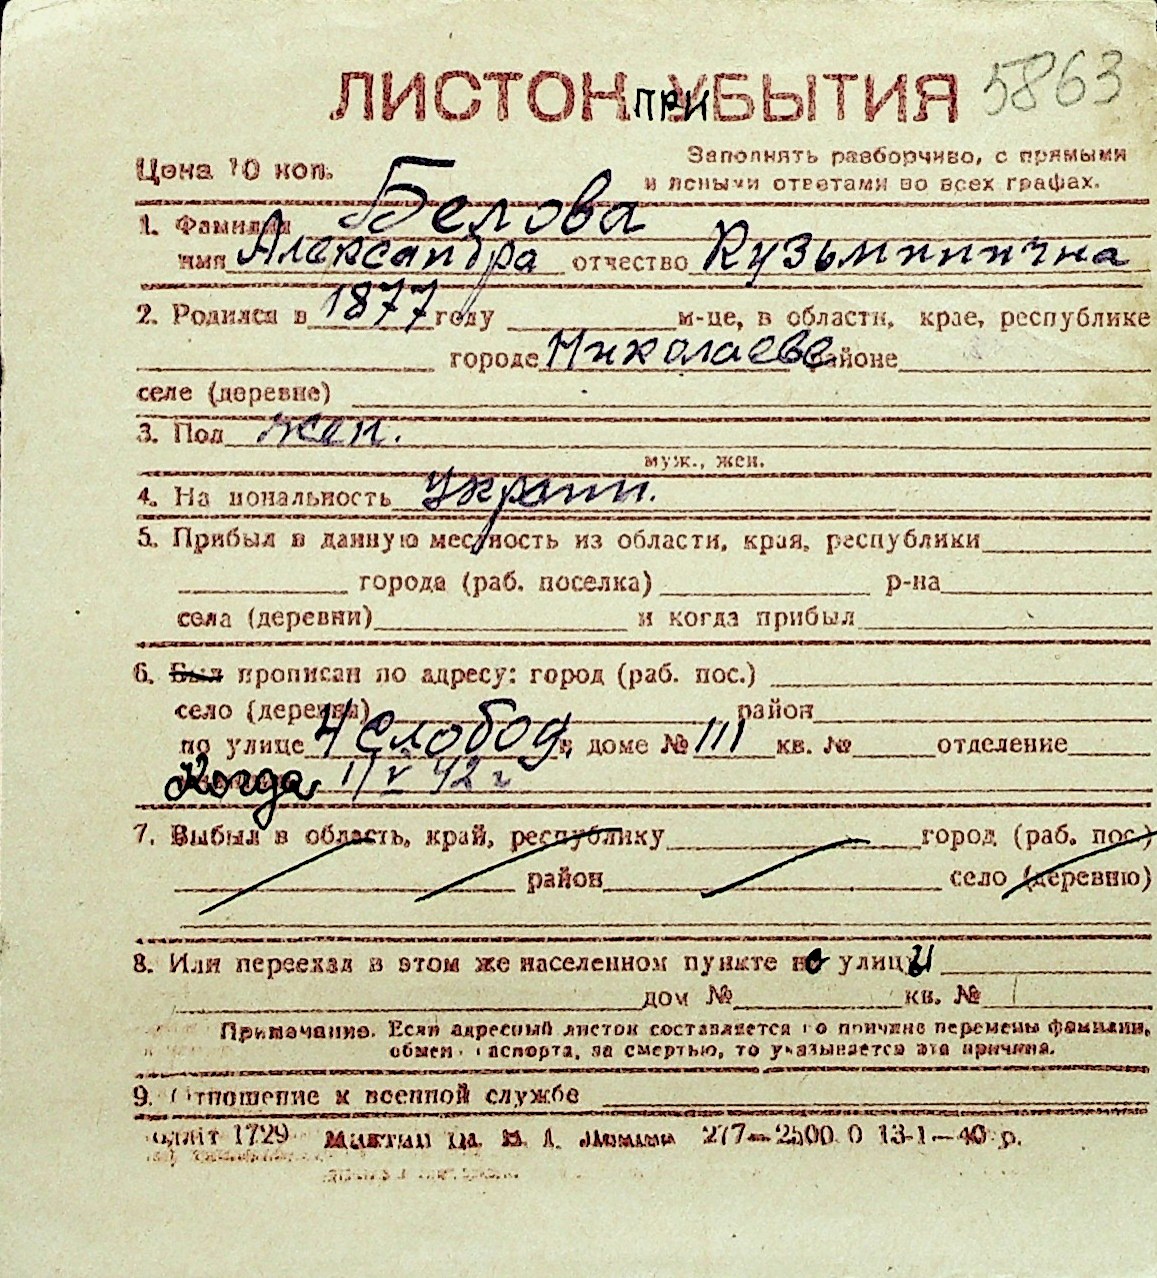 ЛИСТОК ПРИБЫТИЯ 5863
Цена 10 коп.
Заполнять разборчиво, с прямыми
и ясными ответами во всех графах.
1. Фамилия Белова
имя Александра отчество Кузьминична
2. Родился в 1877 году м-це, в области, крае, республике
городе Николаеве районе
селе (деревне)
3. Пол жен.
муж., жен.
4. Национальность Украин.
5. Прибыл в данную местность из области, края, республики
города (раб. поселка) р-на
села (деревни) и когда прибыл
6. Был прописан по адресу: город (раб. пос.)
село (деревня) район
по улице 4 Слобод. в доме № 111 кв. № отделение
Когда 11/V 42 г
7. Выбыл в область, край, республику город (раб. пос.)
район село (деревню)
8. Или переехал в этом же населенном пункте с улицы
дом № кв. №
Примечание. Если адресный листок составляется по причине перемены фамилии,
обмен паспорта, за смертью, то указывается эта причина.
9. Отношение к военной службе
1729 277—2500 0 13-1—40 р.